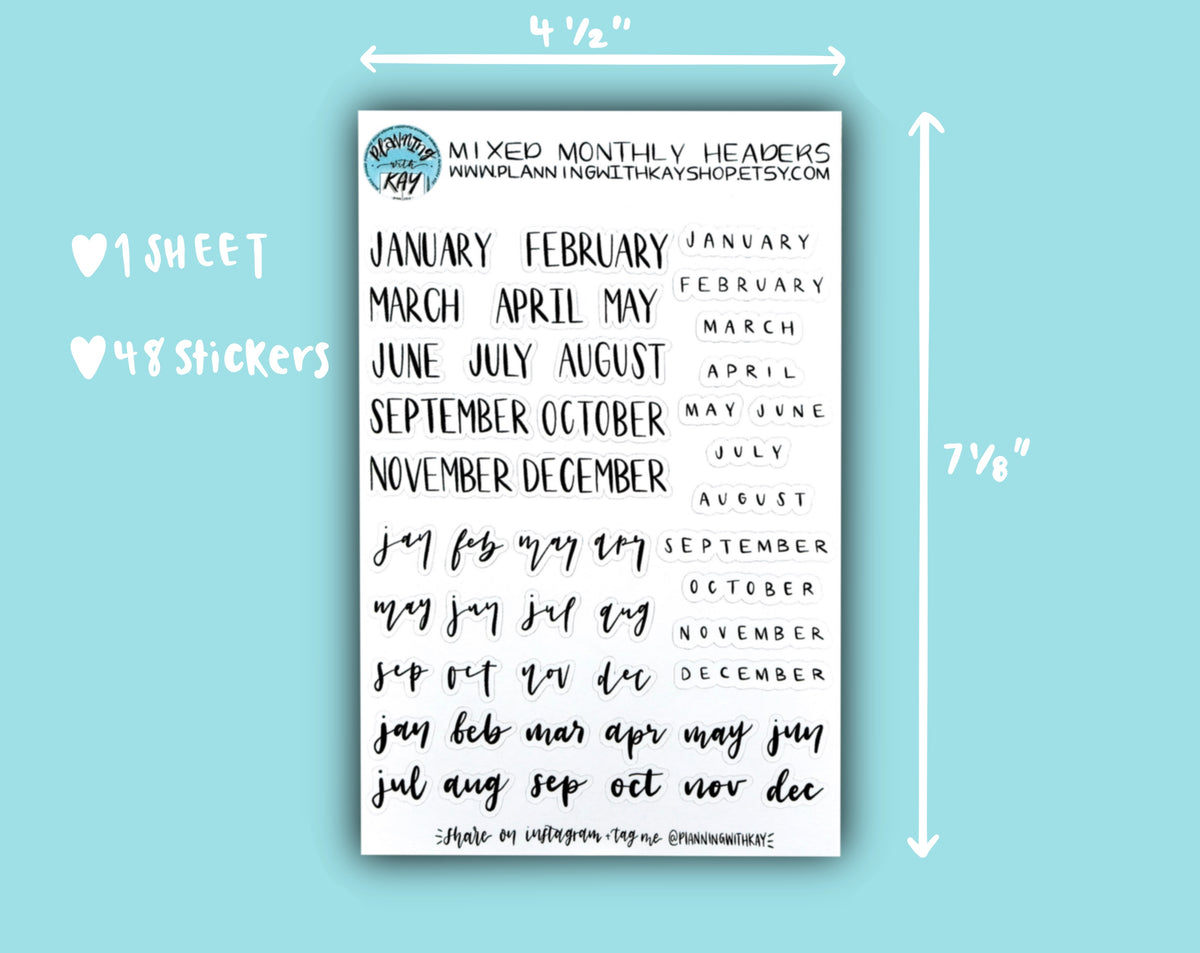 4 1/2"
7 1/8"
♥1 SHEET
♥48 stickers
PLANNING
with
KAY
MIXED MONTHLY HEADERS
WWW.PLANNINGWITHKAYSHOP.ETSY.COM
JANUARY FEBRUARY
MARCH APRIL MAY
JUNE JULY AUGUST
SEPTEMBER OCTOBER
NOVEMBER DECEMBER
JANUARY
FEBRUARY
MARCH
APRIL
MAY JUNE
JULY
AUGUST
SEPTEMBER
OCTOBER
NOVEMBER
DECEMBER
jan feb mar apr
may jun jul aug
sep oct nov dec
jan feb mar apr may jun
jul aug sep oct nov dec
share on instagram + tag me @PLANNINGWITHKAY